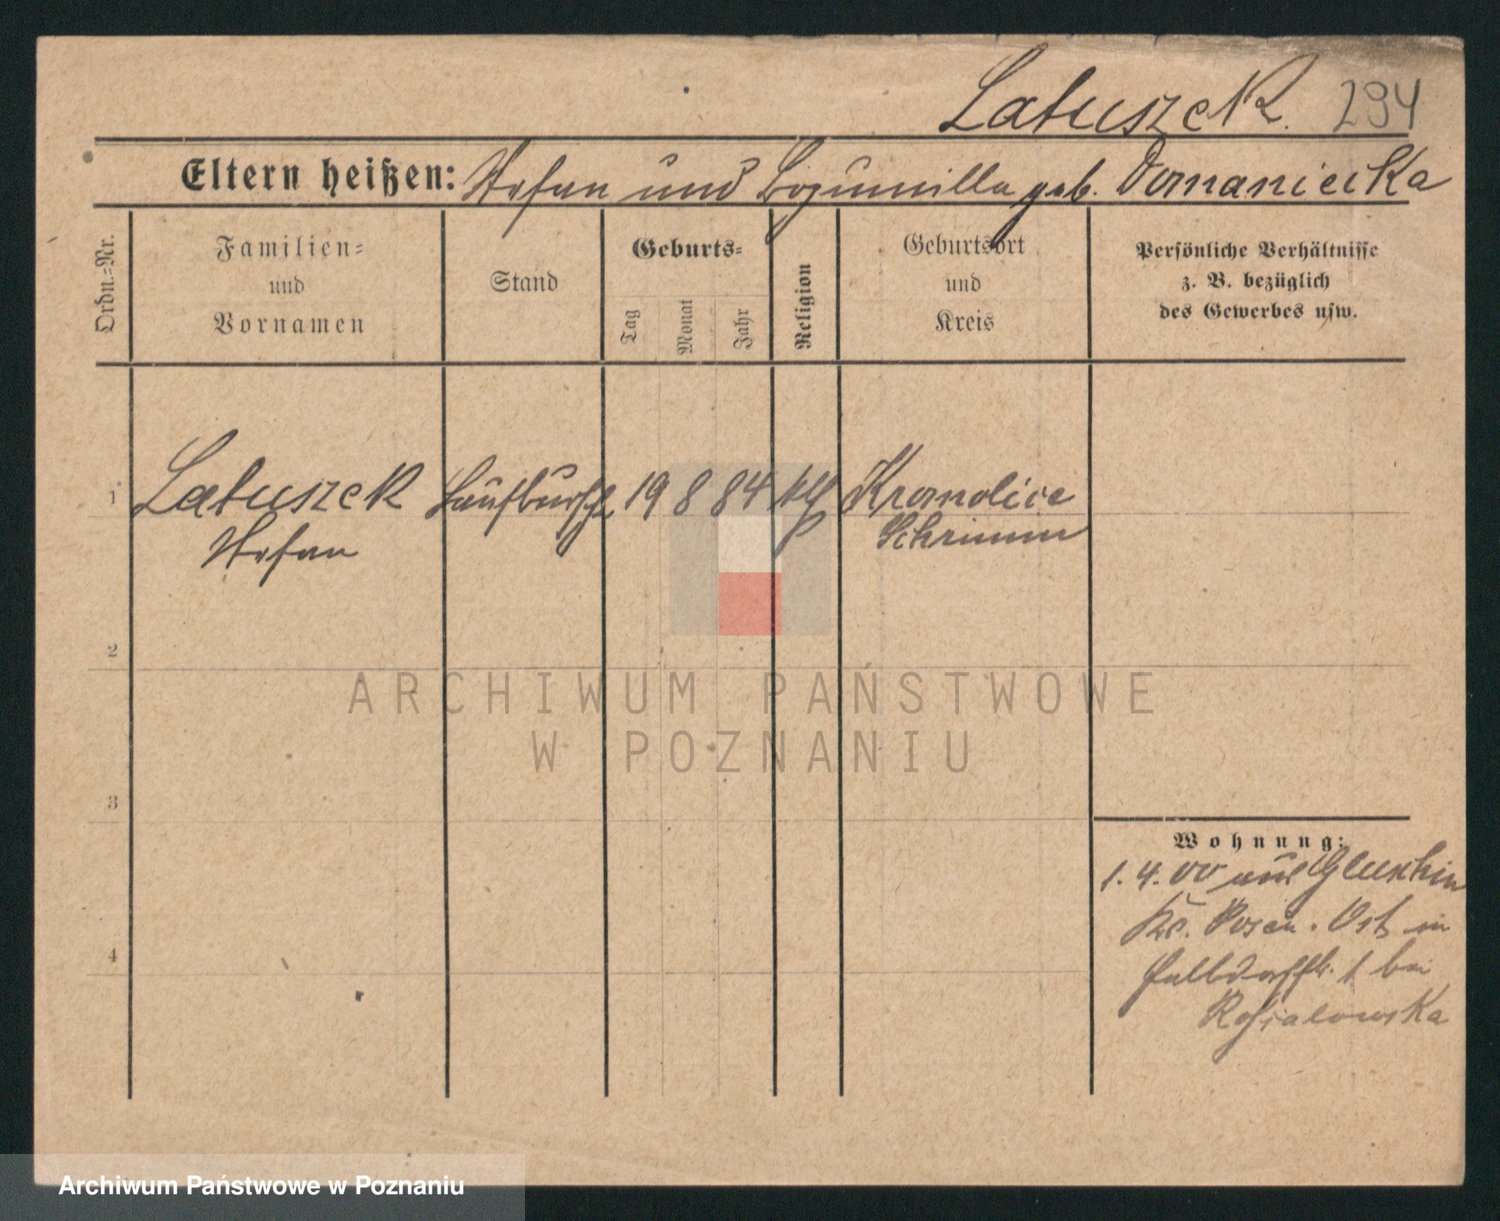 Latuszek. 294
Eltern heißen: Stefan und Bogumilla geb. Domaniecka
Ordn.=Nr.
Familien=
und
Vornamen
Stand
Geburts=
Tag
Monat
Jahr
Religion
Geburtsort
und
Kreis
Persönliche Verhältnisse
z. B. bezüglich
des Gewerbes usw.
1 Latuszek Laufbursche 19 8 84 kth Kromolice
Stefan Schrimm
2
3
4
ARCHIWUM PAŃSTWOWE
W POZNANIU
Wohnung:
1. 4. 00 aus Gluschin
Kr. Posen. Ost in
1 bei
Archiwum Państwowe w Poznaniu